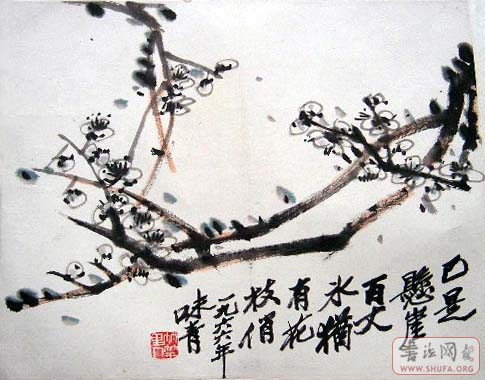 已是
懸崖
百丈
冰猶
有花
枝俏
一九六六年
味青
书法网
WWW.SHUFA.ORG